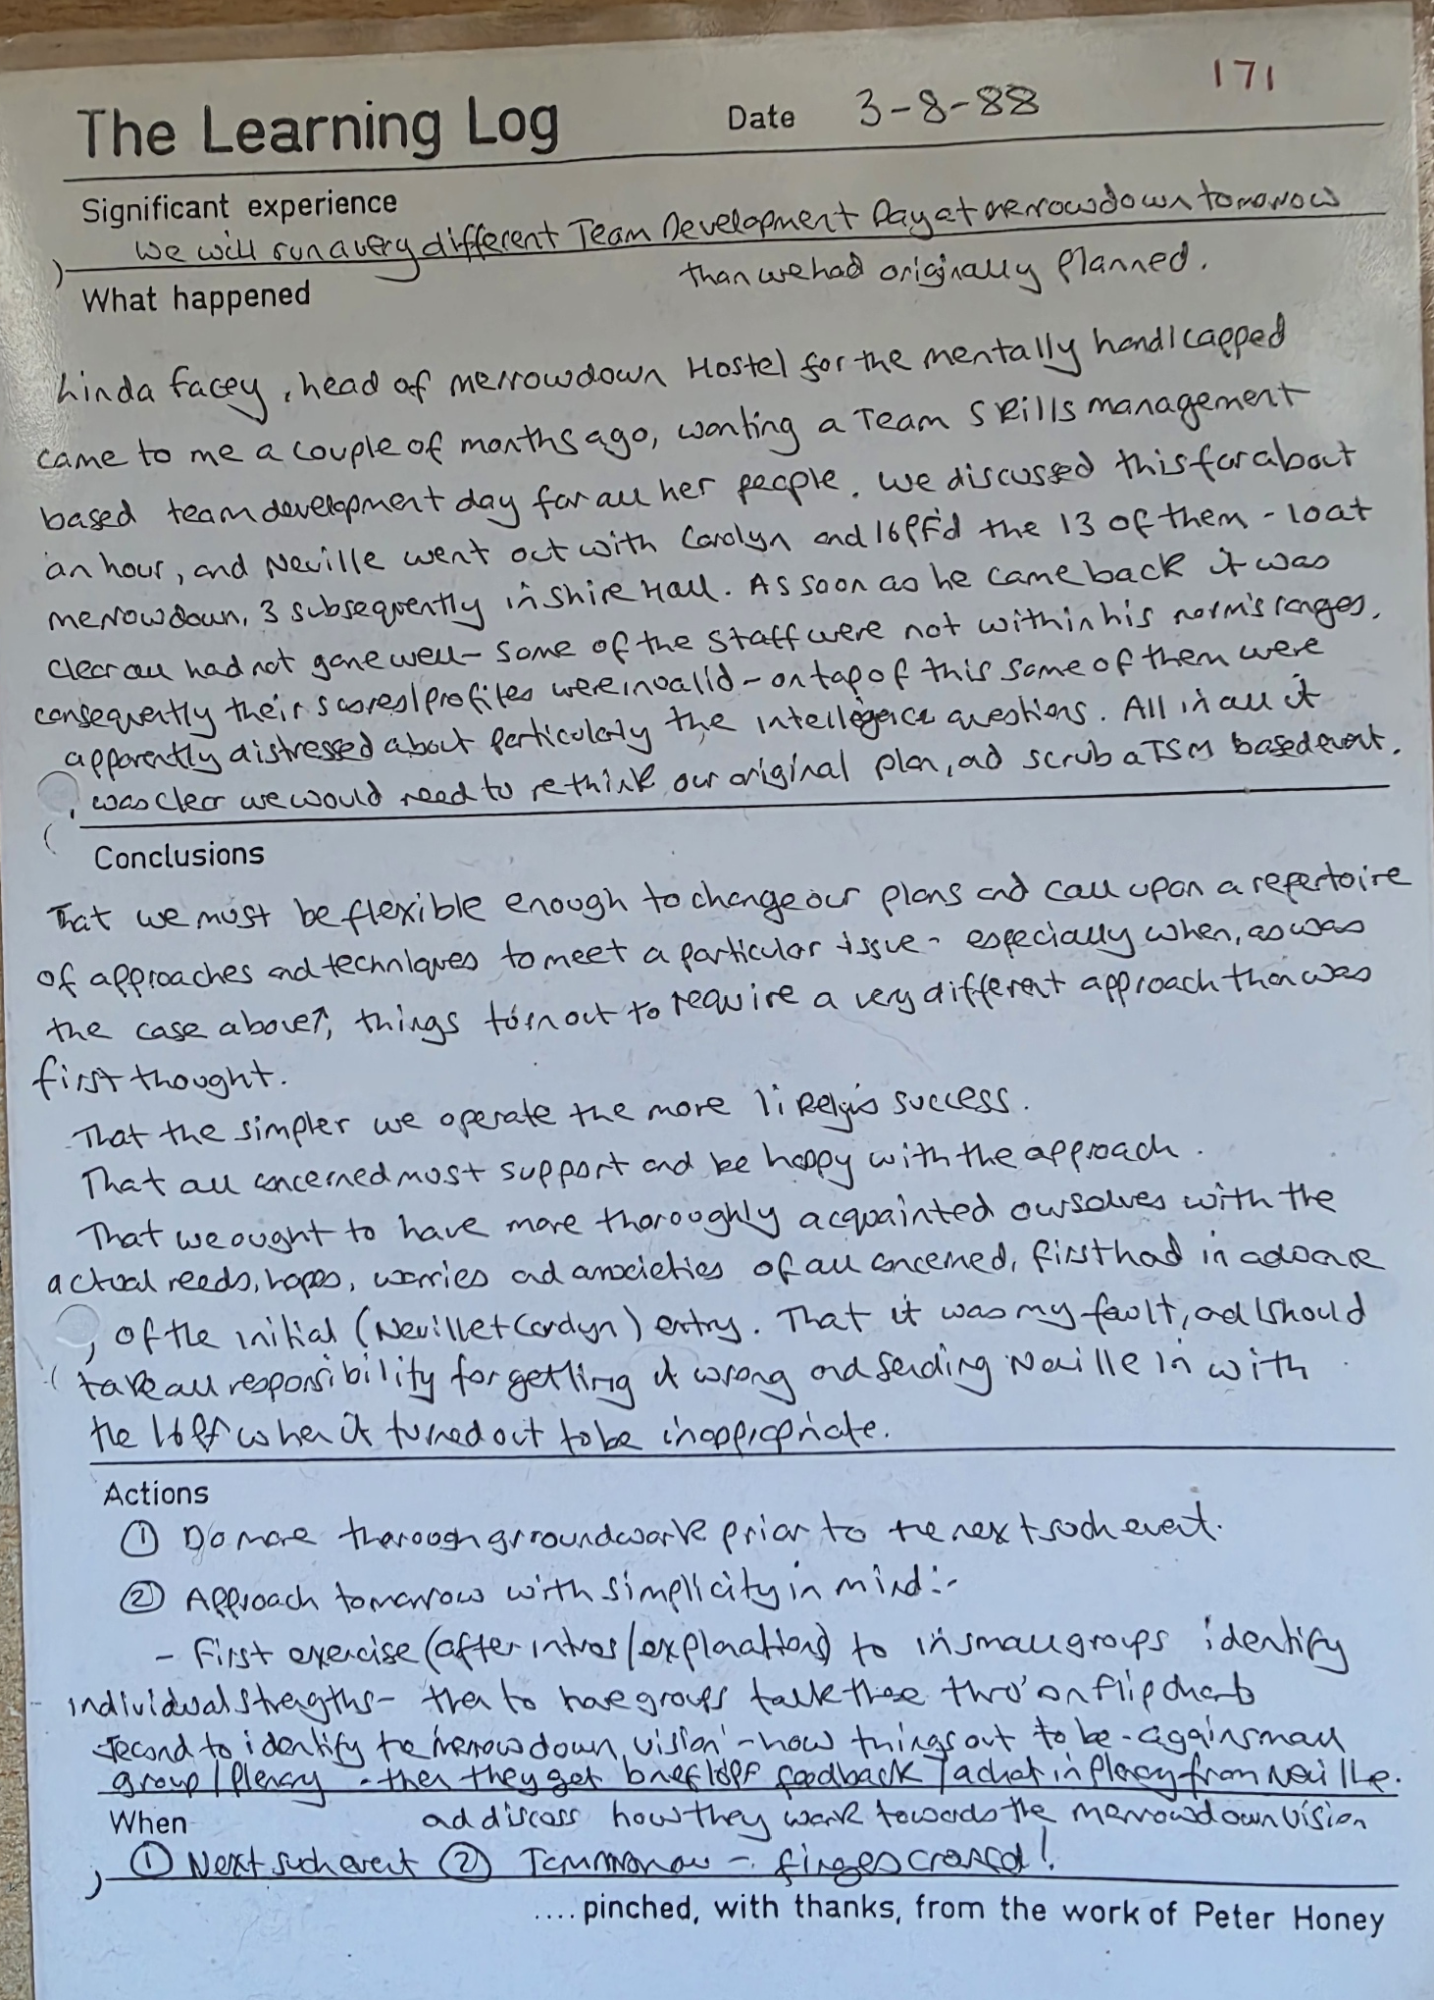 171
The Learning Log Date 3-8-88
Significant experience
We will run a very different Team Development Day at Merrowdown tomorrow
than we had originally planned.
What happened
Linda Facey, head of Merrowdown Hostel for the mentally handicapped
came to me a couple of months ago, wanting a Team Skills management
based team development day for all her people. We discussed this for about
an hour, and Neville went out with Carolyn and 16PF'd the 13 of them - 10 at
Merrowdown, 3 subsequently in Shire Hall. As soon as he came back it was
clear all had not gone well - some of the staff were not within his norm's ranges,
consequently their scores/profiles were invalid - on top of this some of them were
apparently distressed about particularly the intelligence questions. All in all it
was clear we would need to rethink our original plan, and scrub a TSM based event.
Conclusions
That we must be flexible enough to change our plans and call upon a repertoire
of approaches and techniques to meet a particular issue - especially when, as was
the case above↑, things turn out to require a very different approach than was
first thought.
That the simpler we operate the more likely is success.
That all concerned must support and be happy with the approach.
That we ought to have more thoroughly acquainted ourselves with the
actual needs, hopes, worries and anxieties of all concerned, first had in advance
of the initial (Neville + Carolyn) entry. That it was my fault, and I should
take all responsibility for getting it wrong and sending Neville in with
the 16PF when it turned out to be inappropriate.
Actions
① Do more thorough groundwork prior to the next such event.
② Approach tomorrow with simplicity in mind:-
- First exercise (after intros/explanations) to in small groups identify
individual strengths - then to have groups talk these thro' on flipcharts
second to identify the 'Merrowdown vision' - how things out to be - again small
group/plenary - then they get brief 16PF feedback / a chat in plenary from Neville.
and discuss how they work towards the Merrowdown vision
When
① Next such event ② Tommorrow - fingers crossed!
.... pinched, with thanks, from the work of Peter Honey